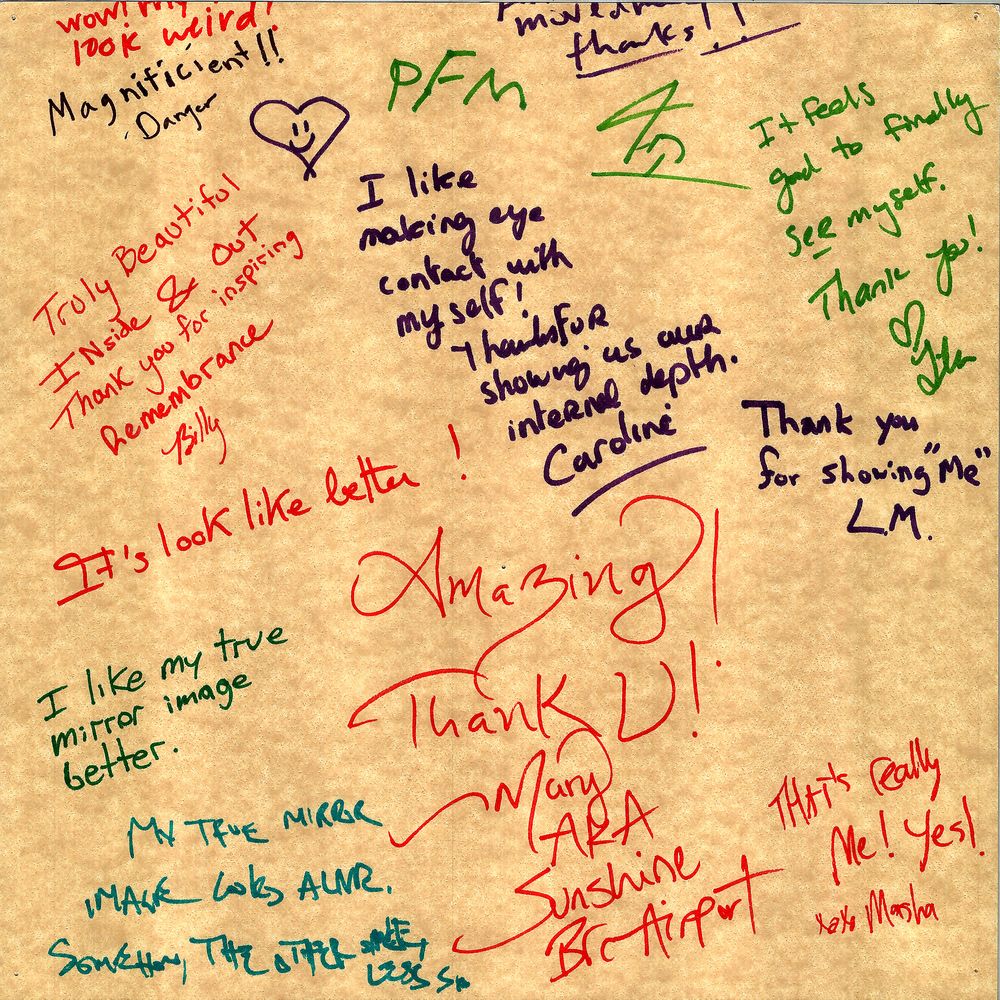 look weird!
thanks!!
Magnificient!!
-Danger
PFM
It feels
good to finally
see myself.
Thank you!
I like
making eye
contact with
myself!
Thanks for
showing us our
internal depth.
Caroline
Truly Beautiful
INside & Out
Thank you for inspiring
Remembrance
Billy
Thank you
for showing "Me"
L.M.
It's look like better !
Amazing!
Thank U!
Mary
AKA
Sunshine
Brc Airport
I like my true
mirror image
better.
My TRUE MIRROR
IMAGE looks ALIVE.
SOMEHOW, THE OTHER
LESS SO
THAT's really
Me! Yes!
xoxo Masha